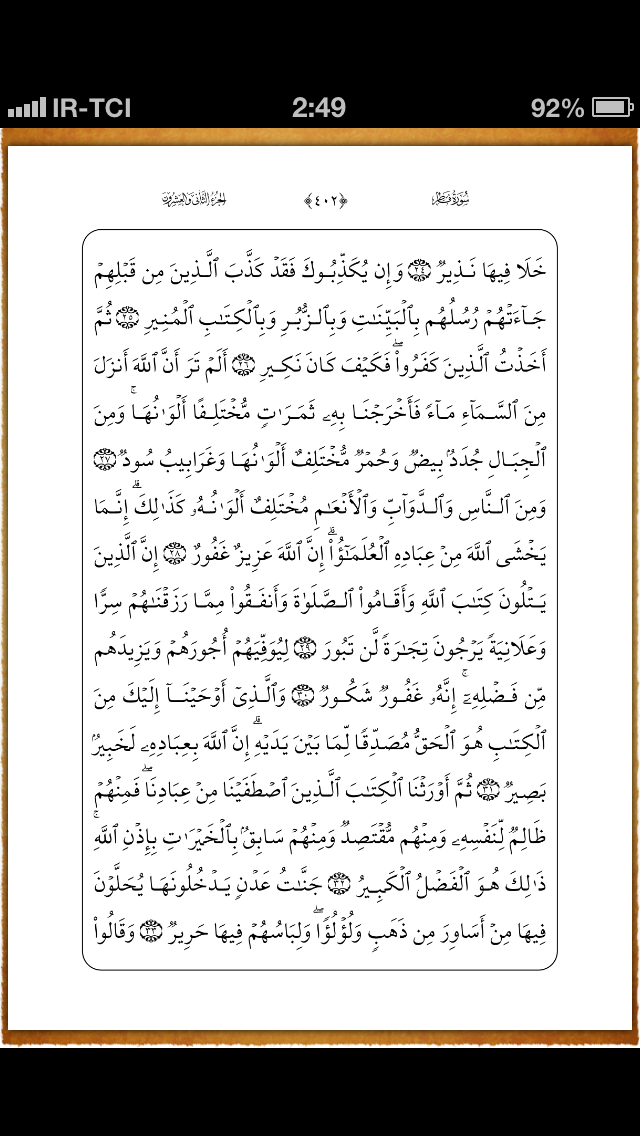 IR-TCI 2:49 92%
سُورَةُ فَاطِر ﴿٤٠٢﴾ الجُزءُ الثَّانِي وَالعِشرُونَ
خَلَا فِيهَا نَذِيرٌ ٢٤ وَإِن يُكَذِّبُوكَ فَقَدْ كَذَّبَ ٱلَّذِينَ مِن قَبْلِهِمْ
جَآءَتْهُمْ رُسُلُهُم بِٱلْبَيِّنَٰتِ وَبِٱلزُّبُرِ وَبِٱلْكِتَٰبِ ٱلْمُنِيرِ ٢٥ ثُمَّ
أَخَذْتُ ٱلَّذِينَ كَفَرُوا۟ ۖ فَكَيْفَ كَانَ نَكِيرِ ٢٦ أَلَمْ تَرَ أَنَّ ٱللَّهَ أَنزَلَ
مِنَ ٱلسَّمَآءِ مَآءً فَأَخْرَجْنَا بِهِۦ ثَمَرَٰتٍ مُّخْتَلِفًا أَلْوَٰنُهَا ۚ وَمِنَ
ٱلْجِبَالِ جُدَدٌۢ بِيضٌ وَحُمْرٌ مُّخْتَلِفٌ أَلْوَٰنُهَا وَغَرَابِيبُ سُودٌ ٢٧
وَمِنَ ٱلنَّاسِ وَٱلدَّوَآبِّ وَٱلْأَنْعَٰمِ مُخْتَلِفٌ أَلْوَٰنُهُۥ كَذَٰلِكَ ۗ إِنَّمَا
يَخْشَى ٱللَّهَ مِنْ عِبَادِهِ ٱلْعُلَمَٰٓؤُا۟ ۗ إِنَّ ٱللَّهَ عَزِيزٌ غَفُورٌ ٢٨ إِنَّ ٱلَّذِينَ
يَتْلُونَ كِتَٰبَ ٱللَّهِ وَأَقَامُوا۟ ٱلصَّلَوٰةَ وَأَنفَقُوا۟ مِمَّا رَزَقْنَٰهُمْ سِرًّا
وَعَلَانِيَةً يَرْجُونَ تِجَٰرَةً لَّن تَبُورَ ٢٩ لِيُوَفِّيَهُمْ أُجُورَهُمْ وَيَزِيدَهُم
مِّن فَضْلِهِۦٓ ۚ إِنَّهُۥ غَفُورٌ شَكُورٌ ٣٠ وَٱلَّذِىٓ أَوْحَيْنَآ إِلَيْكَ مِنَ
ٱلْكِتَٰبِ هُوَ ٱلْحَقُّ مُصَدِّقًا لِّمَا بَيْنَ يَدَيْهِ ۗ إِنَّ ٱللَّهَ بِعِبَادِهِۦ لَخَبِيرٌۢ
بَصِيرٌ ٣١ ثُمَّ أَوْرَثْنَا ٱلْكِتَٰبَ ٱلَّذِينَ ٱصْطَفَيْنَا مِنْ عِبَادِنَا ۖ فَمِنْهُمْ
ظَالِمٌ لِّنَفْسِهِۦ وَمِنْهُم مُّقْتَصِدٌ وَمِنْهُمْ سَابِقٌۢ بِٱلْخَيْرَٰتِ بِإِذْنِ ٱللَّهِ ۚ
ذَٰلِكَ هُوَ ٱلْفَضْلُ ٱلْكَبِيرُ ٣٢ جَنَّٰتُ عَدْنٍ يَدْخُلُونَهَا يُحَلَّوْنَ
فِيهَا مِنْ أَسَاوِرَ مِن ذَهَبٍ وَلُؤْلُؤًا ۖ وَلِبَاسُهُمْ فِيهَا حَرِيرٌ ٣٣ وَقَالُوا۟